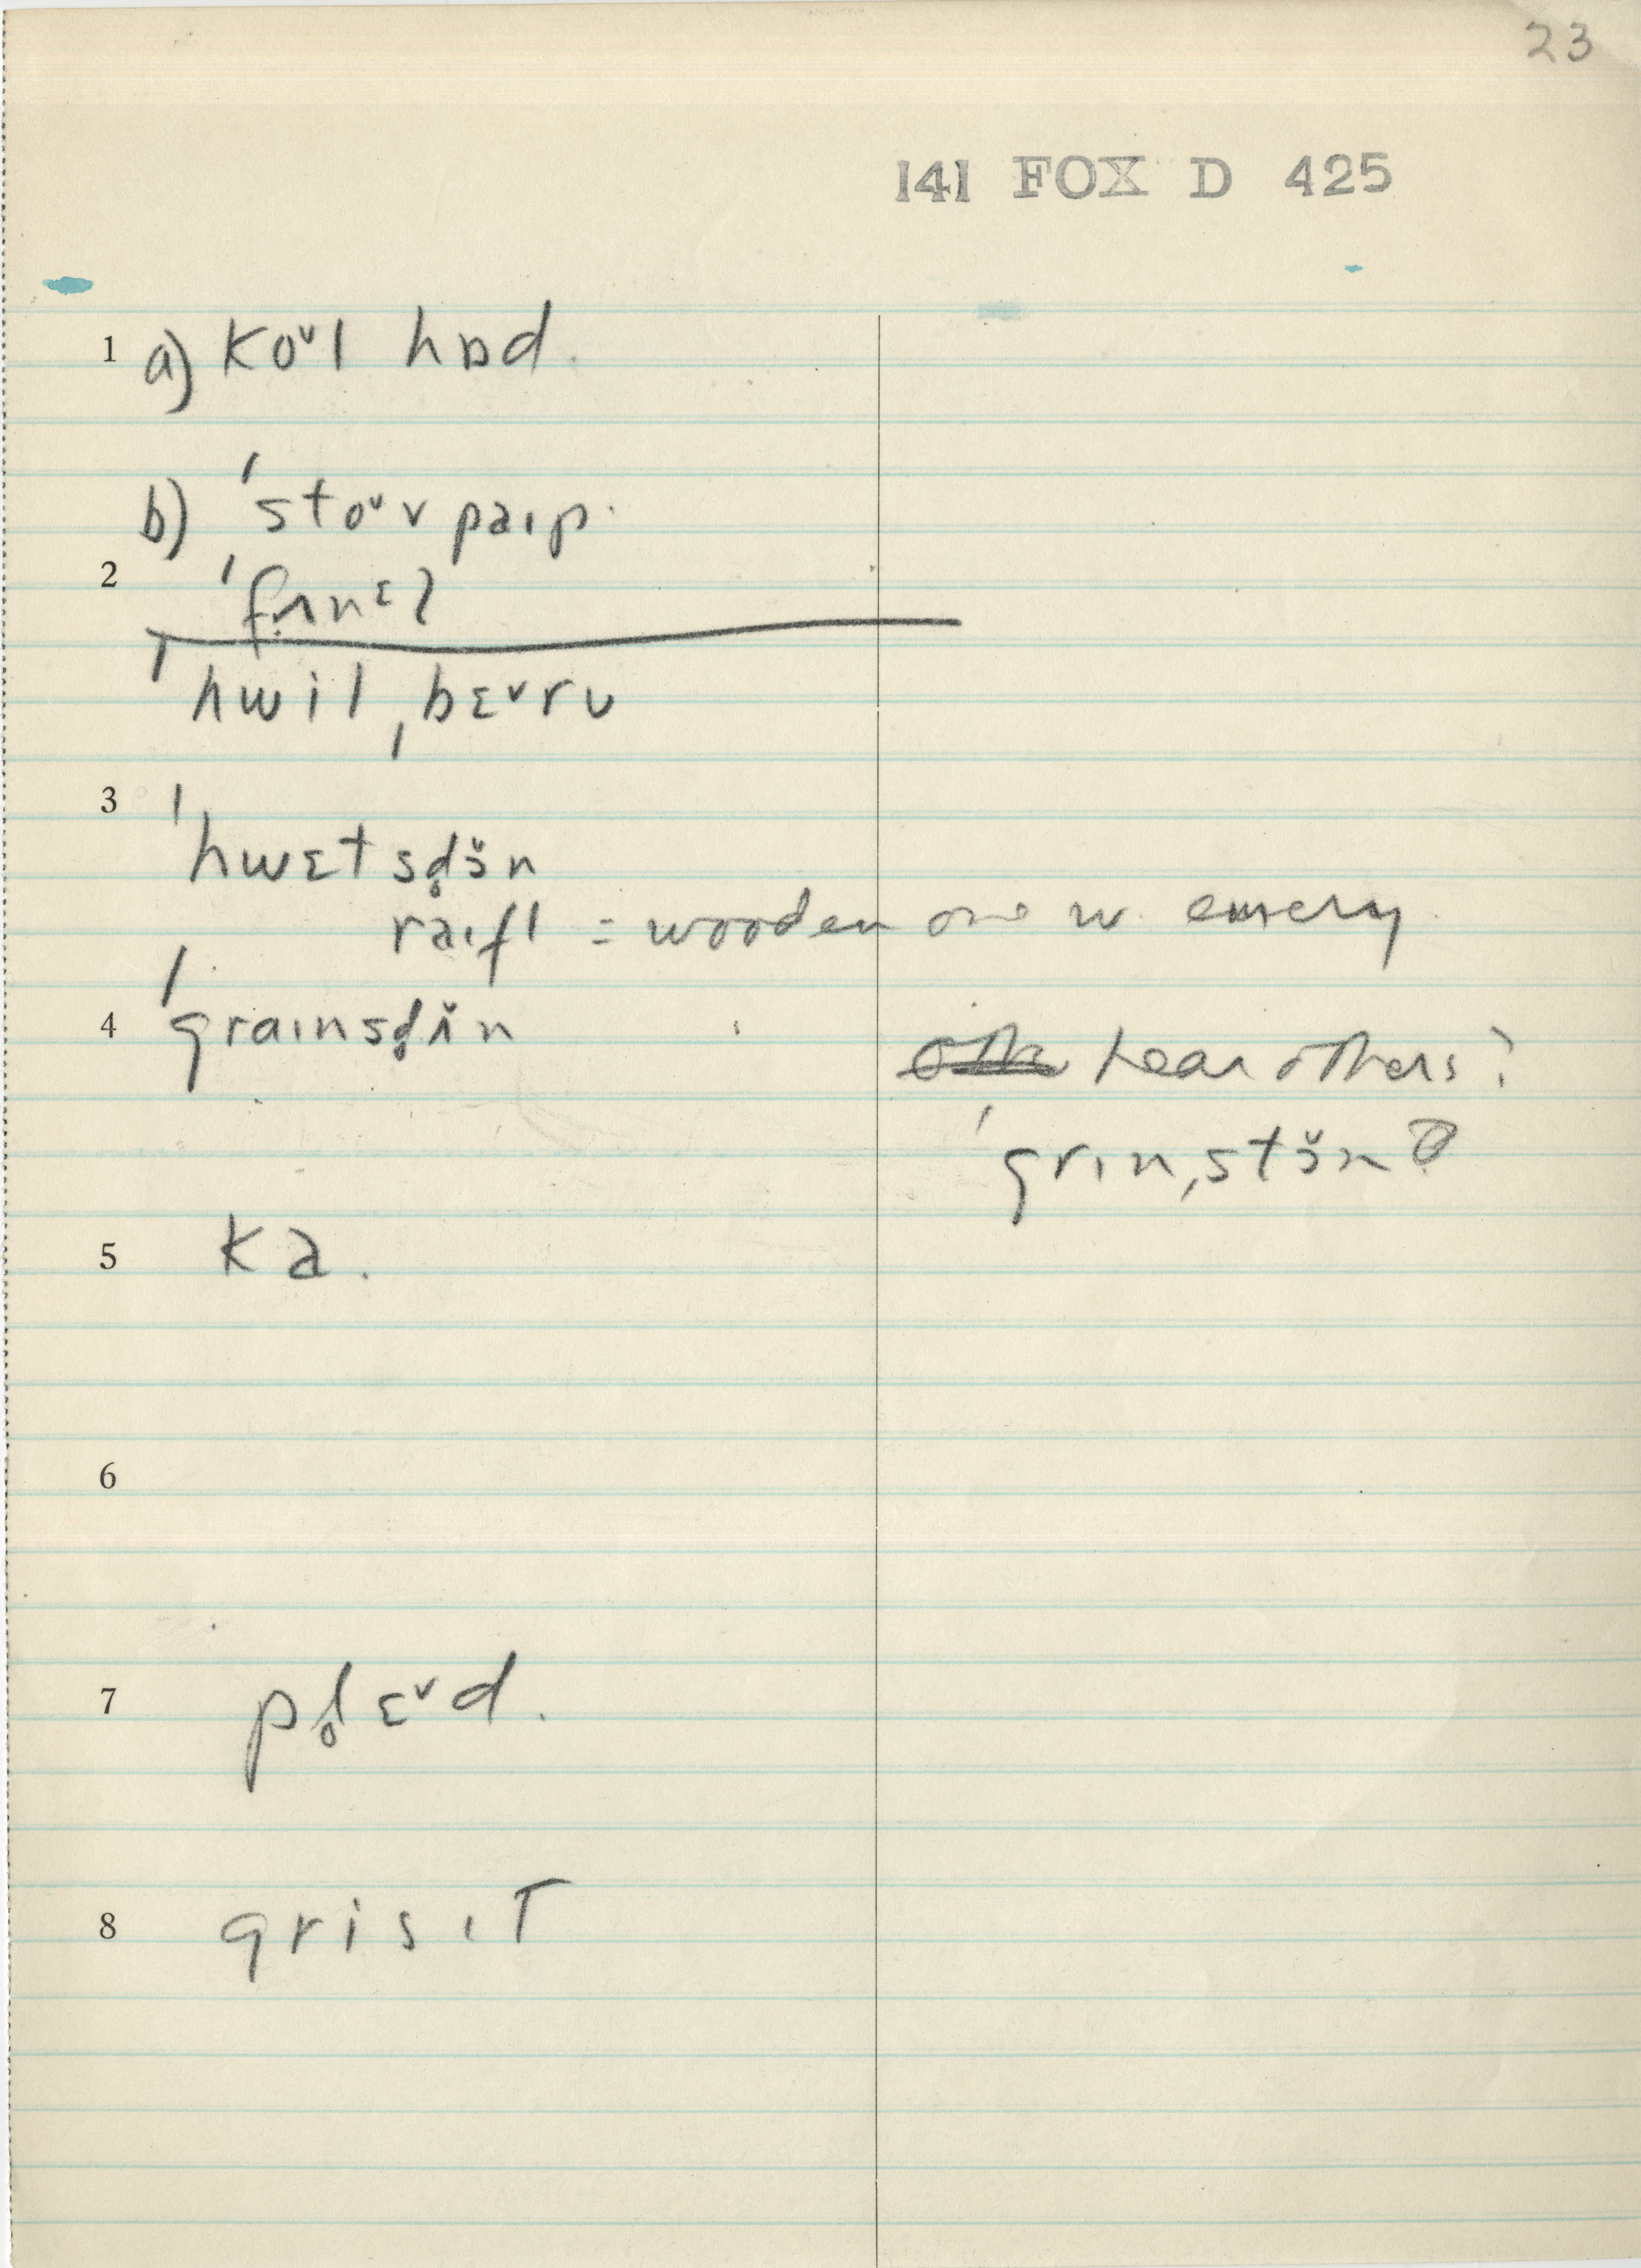 23
141 FOX D 425
1 a) ko˅l hɒd.
b) ˈsto˅v paɪp.
2 ˈfʌnɛl
ˈhwilˌbɛ˅rʊ
3 ˈhwɛtsd̥ɔ̌n
raɪfl = wooden one w. emery.
4 ˈgraɪnsd̥ʌ̌n
hear others?
ˈgrɪnˌstɔ̌n?
5 ka.
6
7 pl̥ɛ˅d.
8 grisɪT